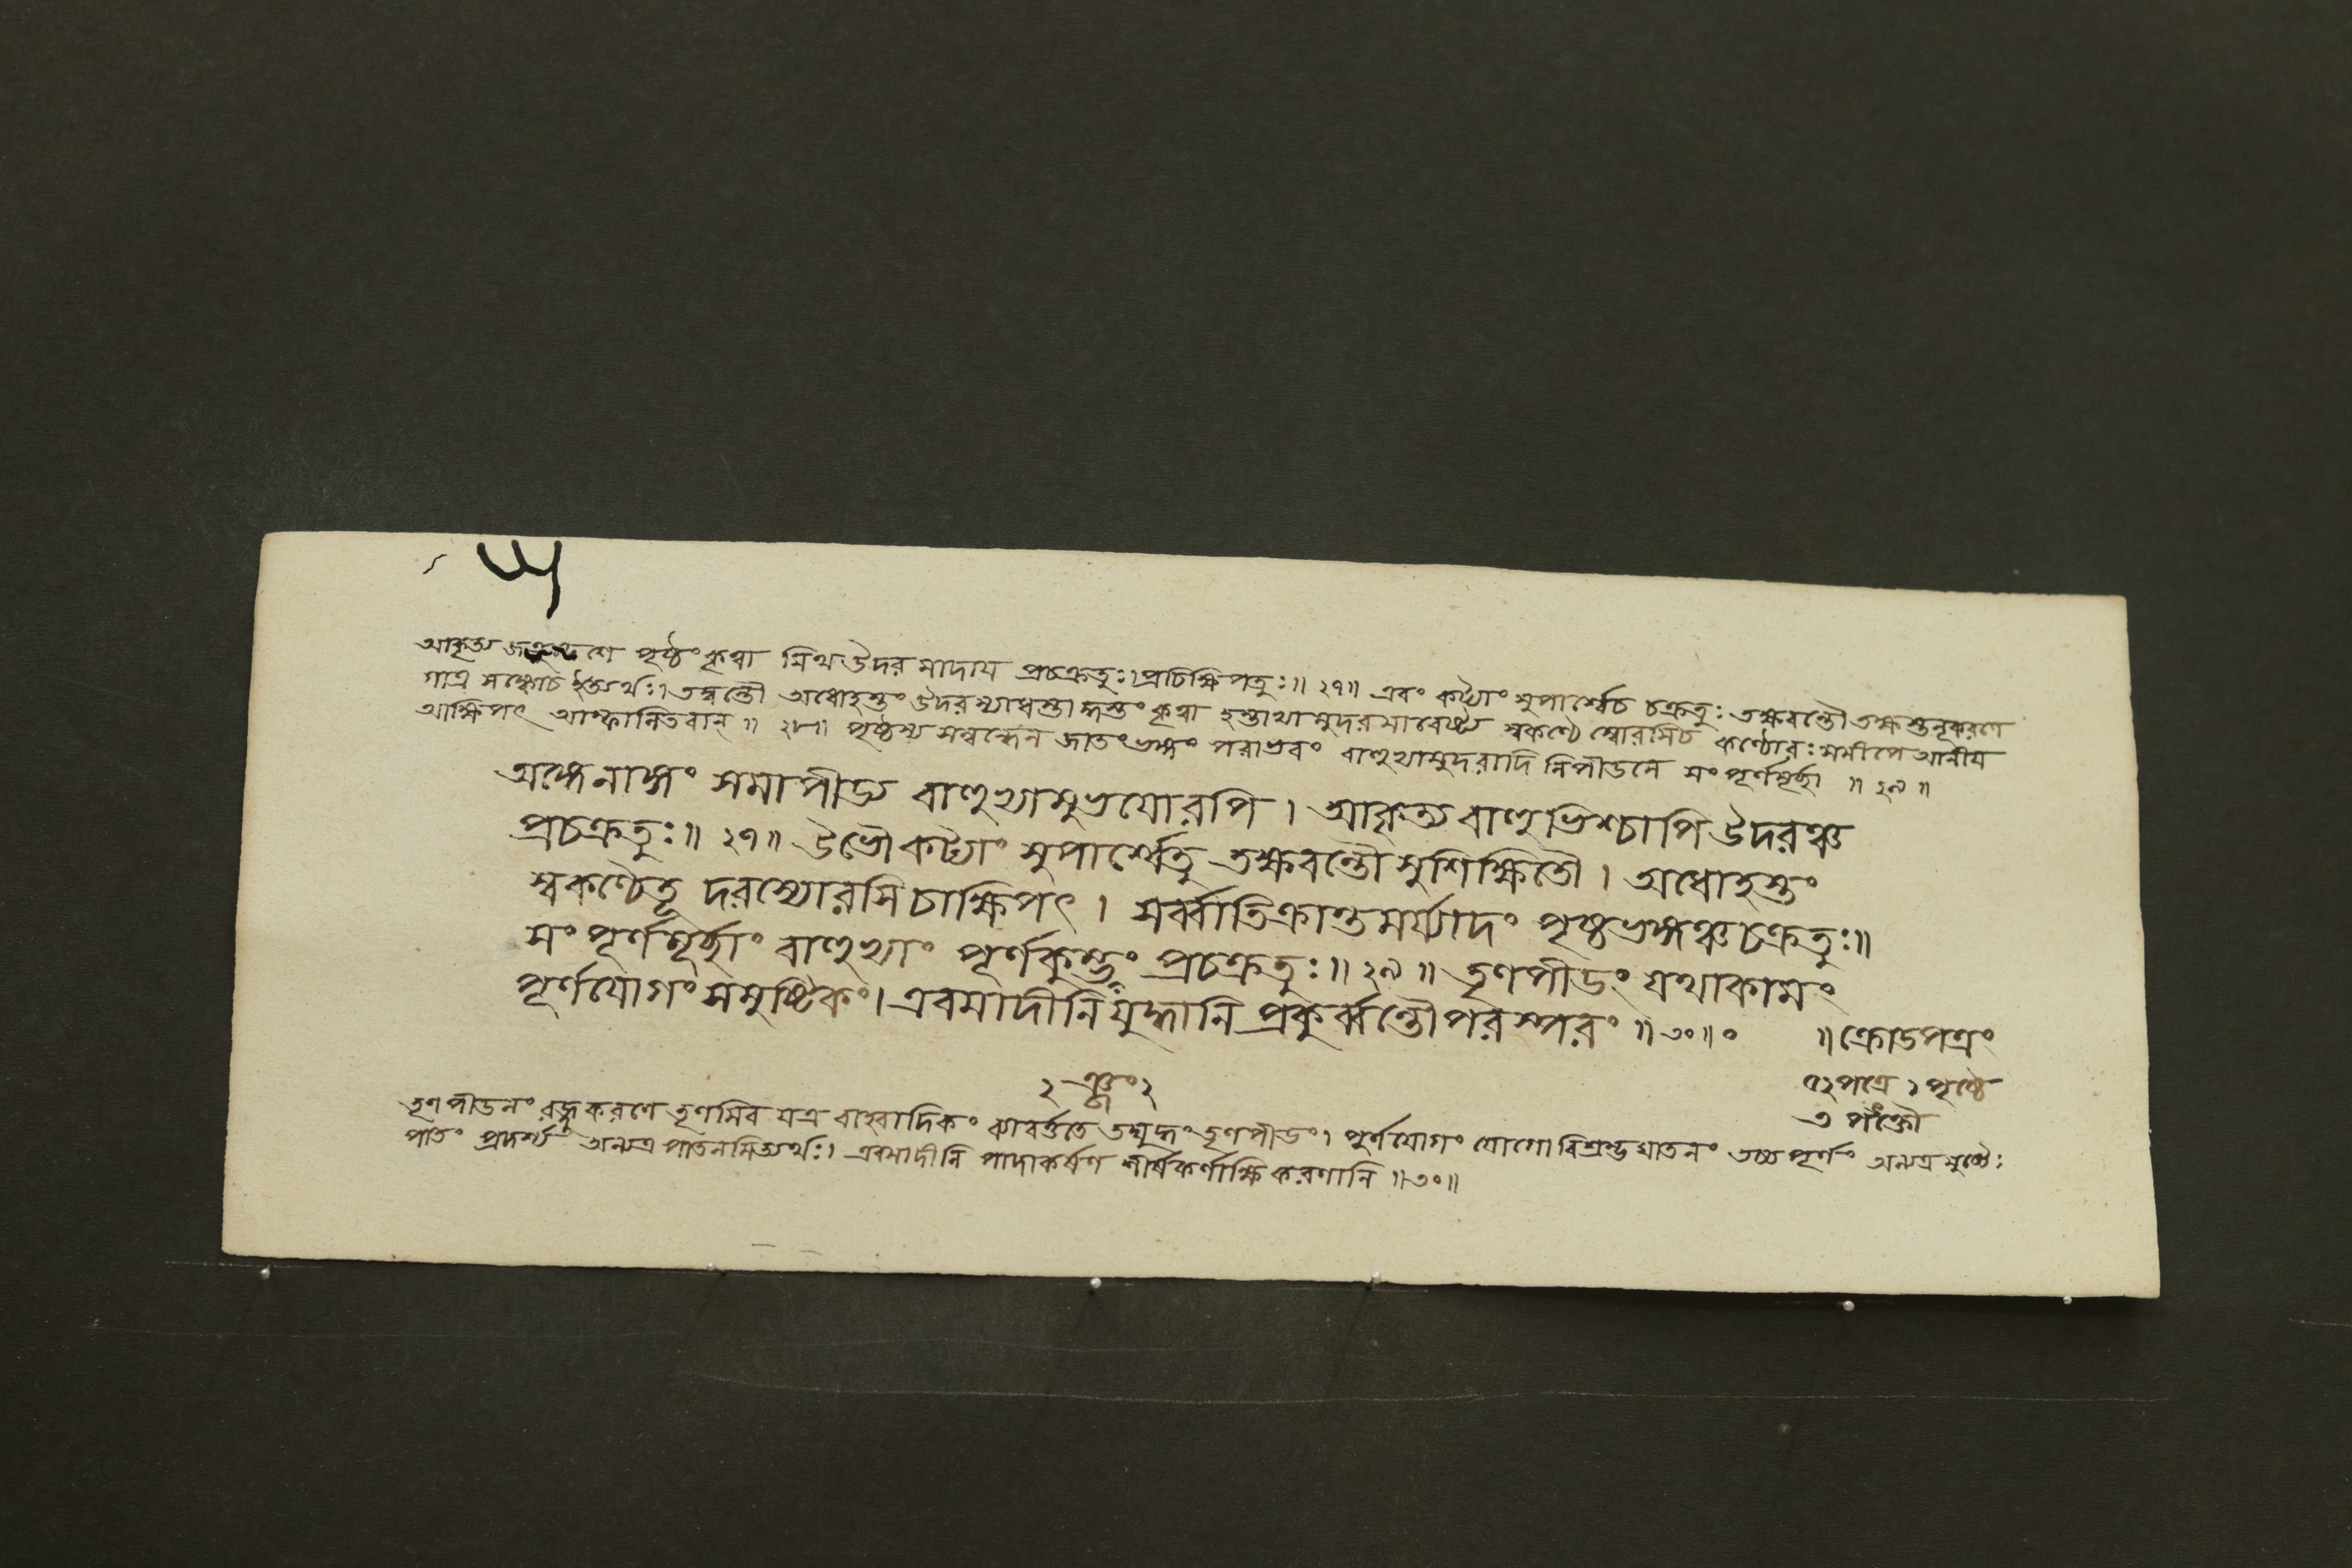 আকৃষ্য পৃষ্ঠং কৃত্বা মিথ উদরমাদায প্রচক্রতুঃ। প্রচিক্ষিপতুঃ॥ ২৭॥ এবং কট্যাং সুপার্শ্বেচ চক্রতুঃ তক্ষবন্তৌ তক্ষস্তনূকরণে
গাত্র সঙ্কোচ ইত্যর্থঃ। তদ্বন্তৌ অধোহস্তং উদরস্যাধস্তাদ্ধস্তং কৃত্বা হস্তাভ্যামুদরমাবেষ্ট্য স্বকণ্ঠে স্বোরসিচ কণ্ঠোরঃ সমীপে আনীয
আক্ষিপৎ আস্ফালিতবান্ ॥ ২৮॥ পৃষ্ঠস্য সম্বন্ধেন জাতং ভঙ্গং পরাভবং বাহুভ্যামুদরাদি নিপীডনে সংপূর্ণমূর্ছা ॥ ২৯ ॥
অঙ্গেনাঙ্গং সমাপীড্য বাহুভ্যামুভযোরপি । আকৃষ্য বাহুভিশ্চাপি উদরঞ্চ
প্রচক্রতুঃ॥ ২৭॥ উভৌ কট্যাং সুপার্শ্বেতু তক্ষবন্তৌ সুশিক্ষিতৌ । অধোহস্তং
স্বকণ্ঠেতূ দরস্যোরসি চাক্ষিপৎ । সর্ব্বাতিক্রান্তমর্য্যাদং পৃষ্ঠভঙ্গঞ্চ চক্রতুঃ॥
সংপূর্ণমূর্ছাং বাহুভ্যাং পূর্ণকুম্ভং প্রচক্রতুঃ॥ ২৯ ॥ তৃণপীডং যথাকামং
পূর্ণযোগং সমুষ্টিকং। এবমাদীনি যুদ্ধানি প্রকুর্ব্বন্তৌ পরস্পরং ॥ ৩০॥০ ॥ ক্রোডপত্রং
৫২ পত্রে ১ পৃষ্ঠে
৩ পংক্তৌ
তৃণপীডনং রজ্জুকরণে তৃণমিব যত্র বাহ্বাদিকং ব্যাবর্ত্ততে তদ্যুদ্ধং তৃণপীডং। পূর্ণযোগং যোগো বিশ্রব্ধঘাতনং তচ্চ পূর্ণং অন্যত্র মুষ্টেঃ
পাতং প্রদর্শ্য অন্যত্র পাতনমিত্যর্থঃ। এবমাদীনি পাদাকর্ষণ শীর্ষকর্ণাক্ষিকরণানি ॥ ৩০॥